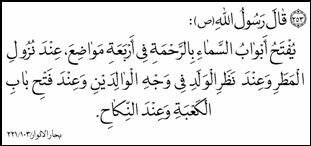 ﴿٢٥٣﴾ قَالَ رَسُولُ اللهِ (ص):
يُفْتَحُ أَبْوَابُ السَّمَاءِ بِالرَّحْمَةِ فِي أَرْبَعَةِ مَوَاضِعَ، عِنْدَ نُزُولِ
الْمَطَرِ وَعِنْدَ نَظَرِ الْوَلَدِ فِي وَجْهِ الْوَالِدَيْنِ وَعِنْدَ فَتْحِ بَابِ
الْكَعْبَةِ وَعِنْدَ النِّكَاحِ.
بحار الانوار/۱۰۳/۲۲۱